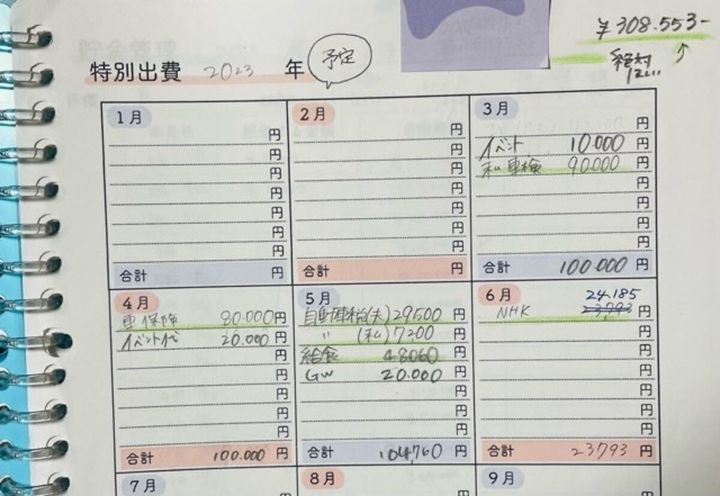 ¥308.553-
絶対
特別出費 2023 年
予定
1月
円
円
円
円
円
円
円
合計 円
2月
円
円
円
円
円
円
円
合計 円
3月
円
イベント 10.000円
私車検 90.000円
円
円
円
円
合計 100.000円
4月
車保険 80.000円
イベント代 20.000円
円
円
円
円
円
合計 100.000円
5月
自動車税(夫)29500円
〃 (私)7200円
給食 48060円
GW 20.000円
円
円
円
合計 104,760円
6月 24.185
NHK 23,793円
円
円
円
円
円
円
合計 23793円
7月
8月
9月